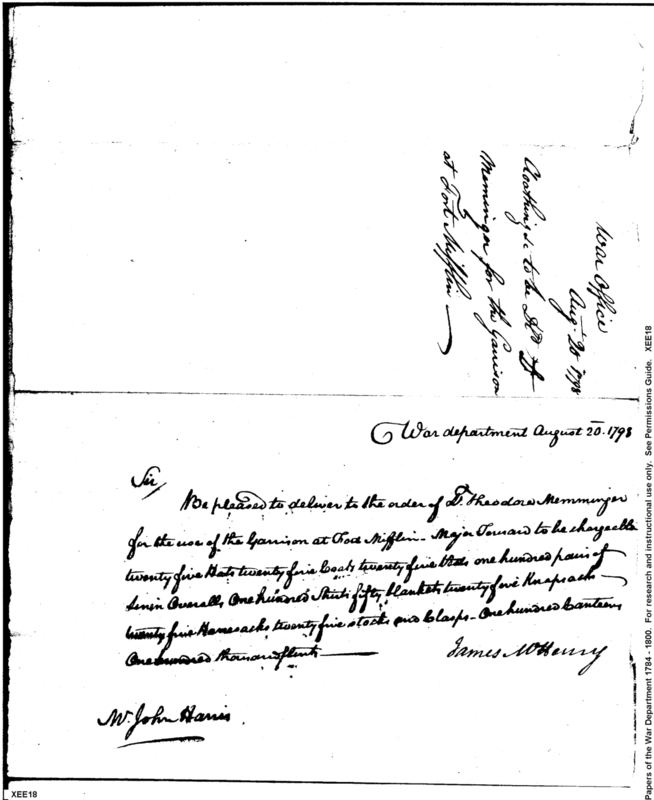 War Office
Aug. 20 1798
Cloathing &c to be Dld
Meminger for the Garrison
at Fort Mifflin
War department August 20. 1798
Sir
Be pleased to deliver to the order of Dr. Theodore Memminger
for the use of the Garrison at Fort Mifflin - Major Tousard to be chargeable
twenty five Hats twenty five Coats twenty five Vests one hundred pairs of
Linen Overalls One hundred Shirts fifty blankets twenty five Knapsacks
twenty five Haversacks twenty five stocks and Clasps - One hundred Canteens
One hundred thousand flints
James McHenry
Mr. John Harris.
Papers of the War Department 1784 - 1800. For research and instructional use only. See Permissions Guide. XEE18
XEE18